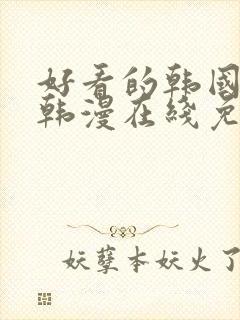 好看的韩国
韩漫在线免
妖孽本妖火了